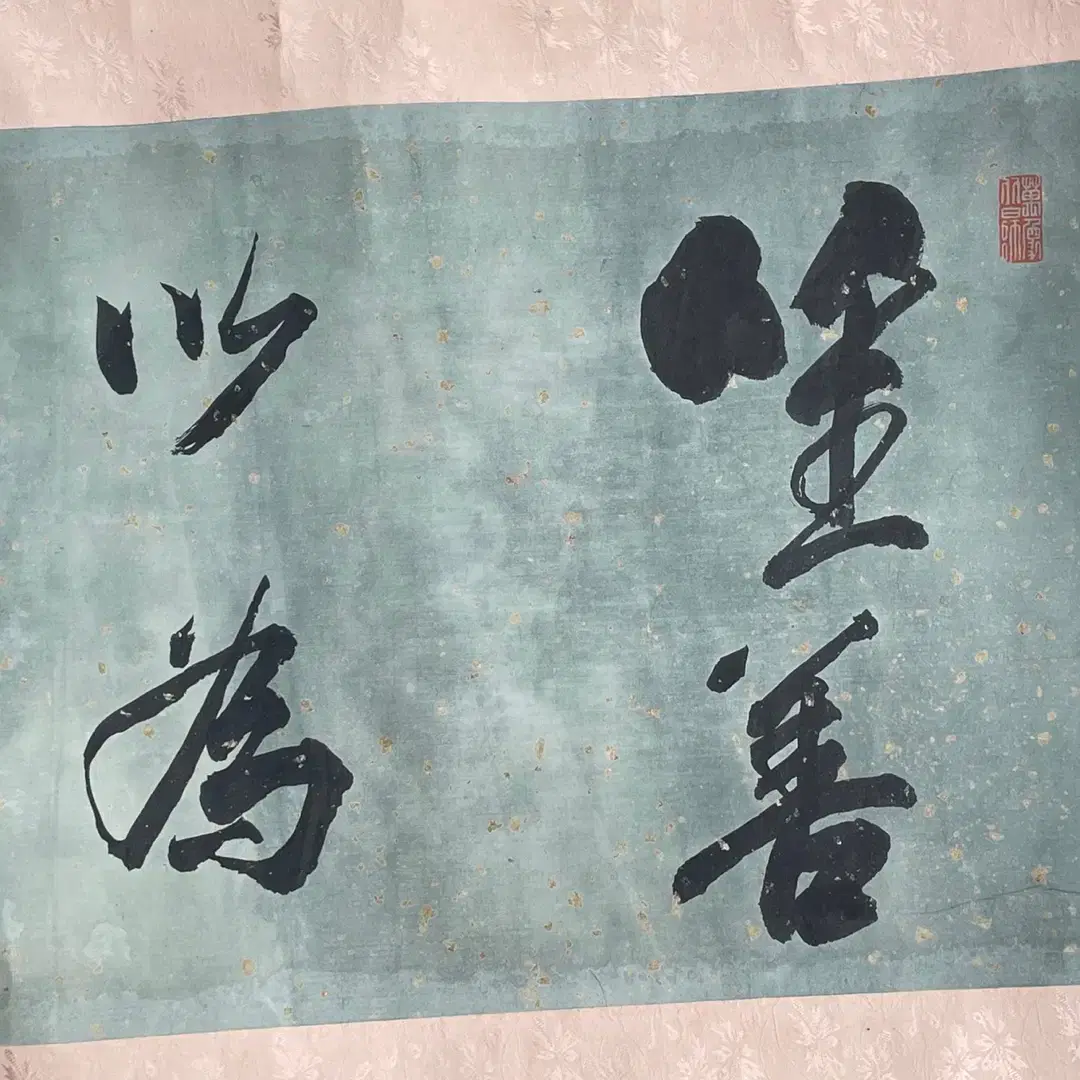 唯善
以為